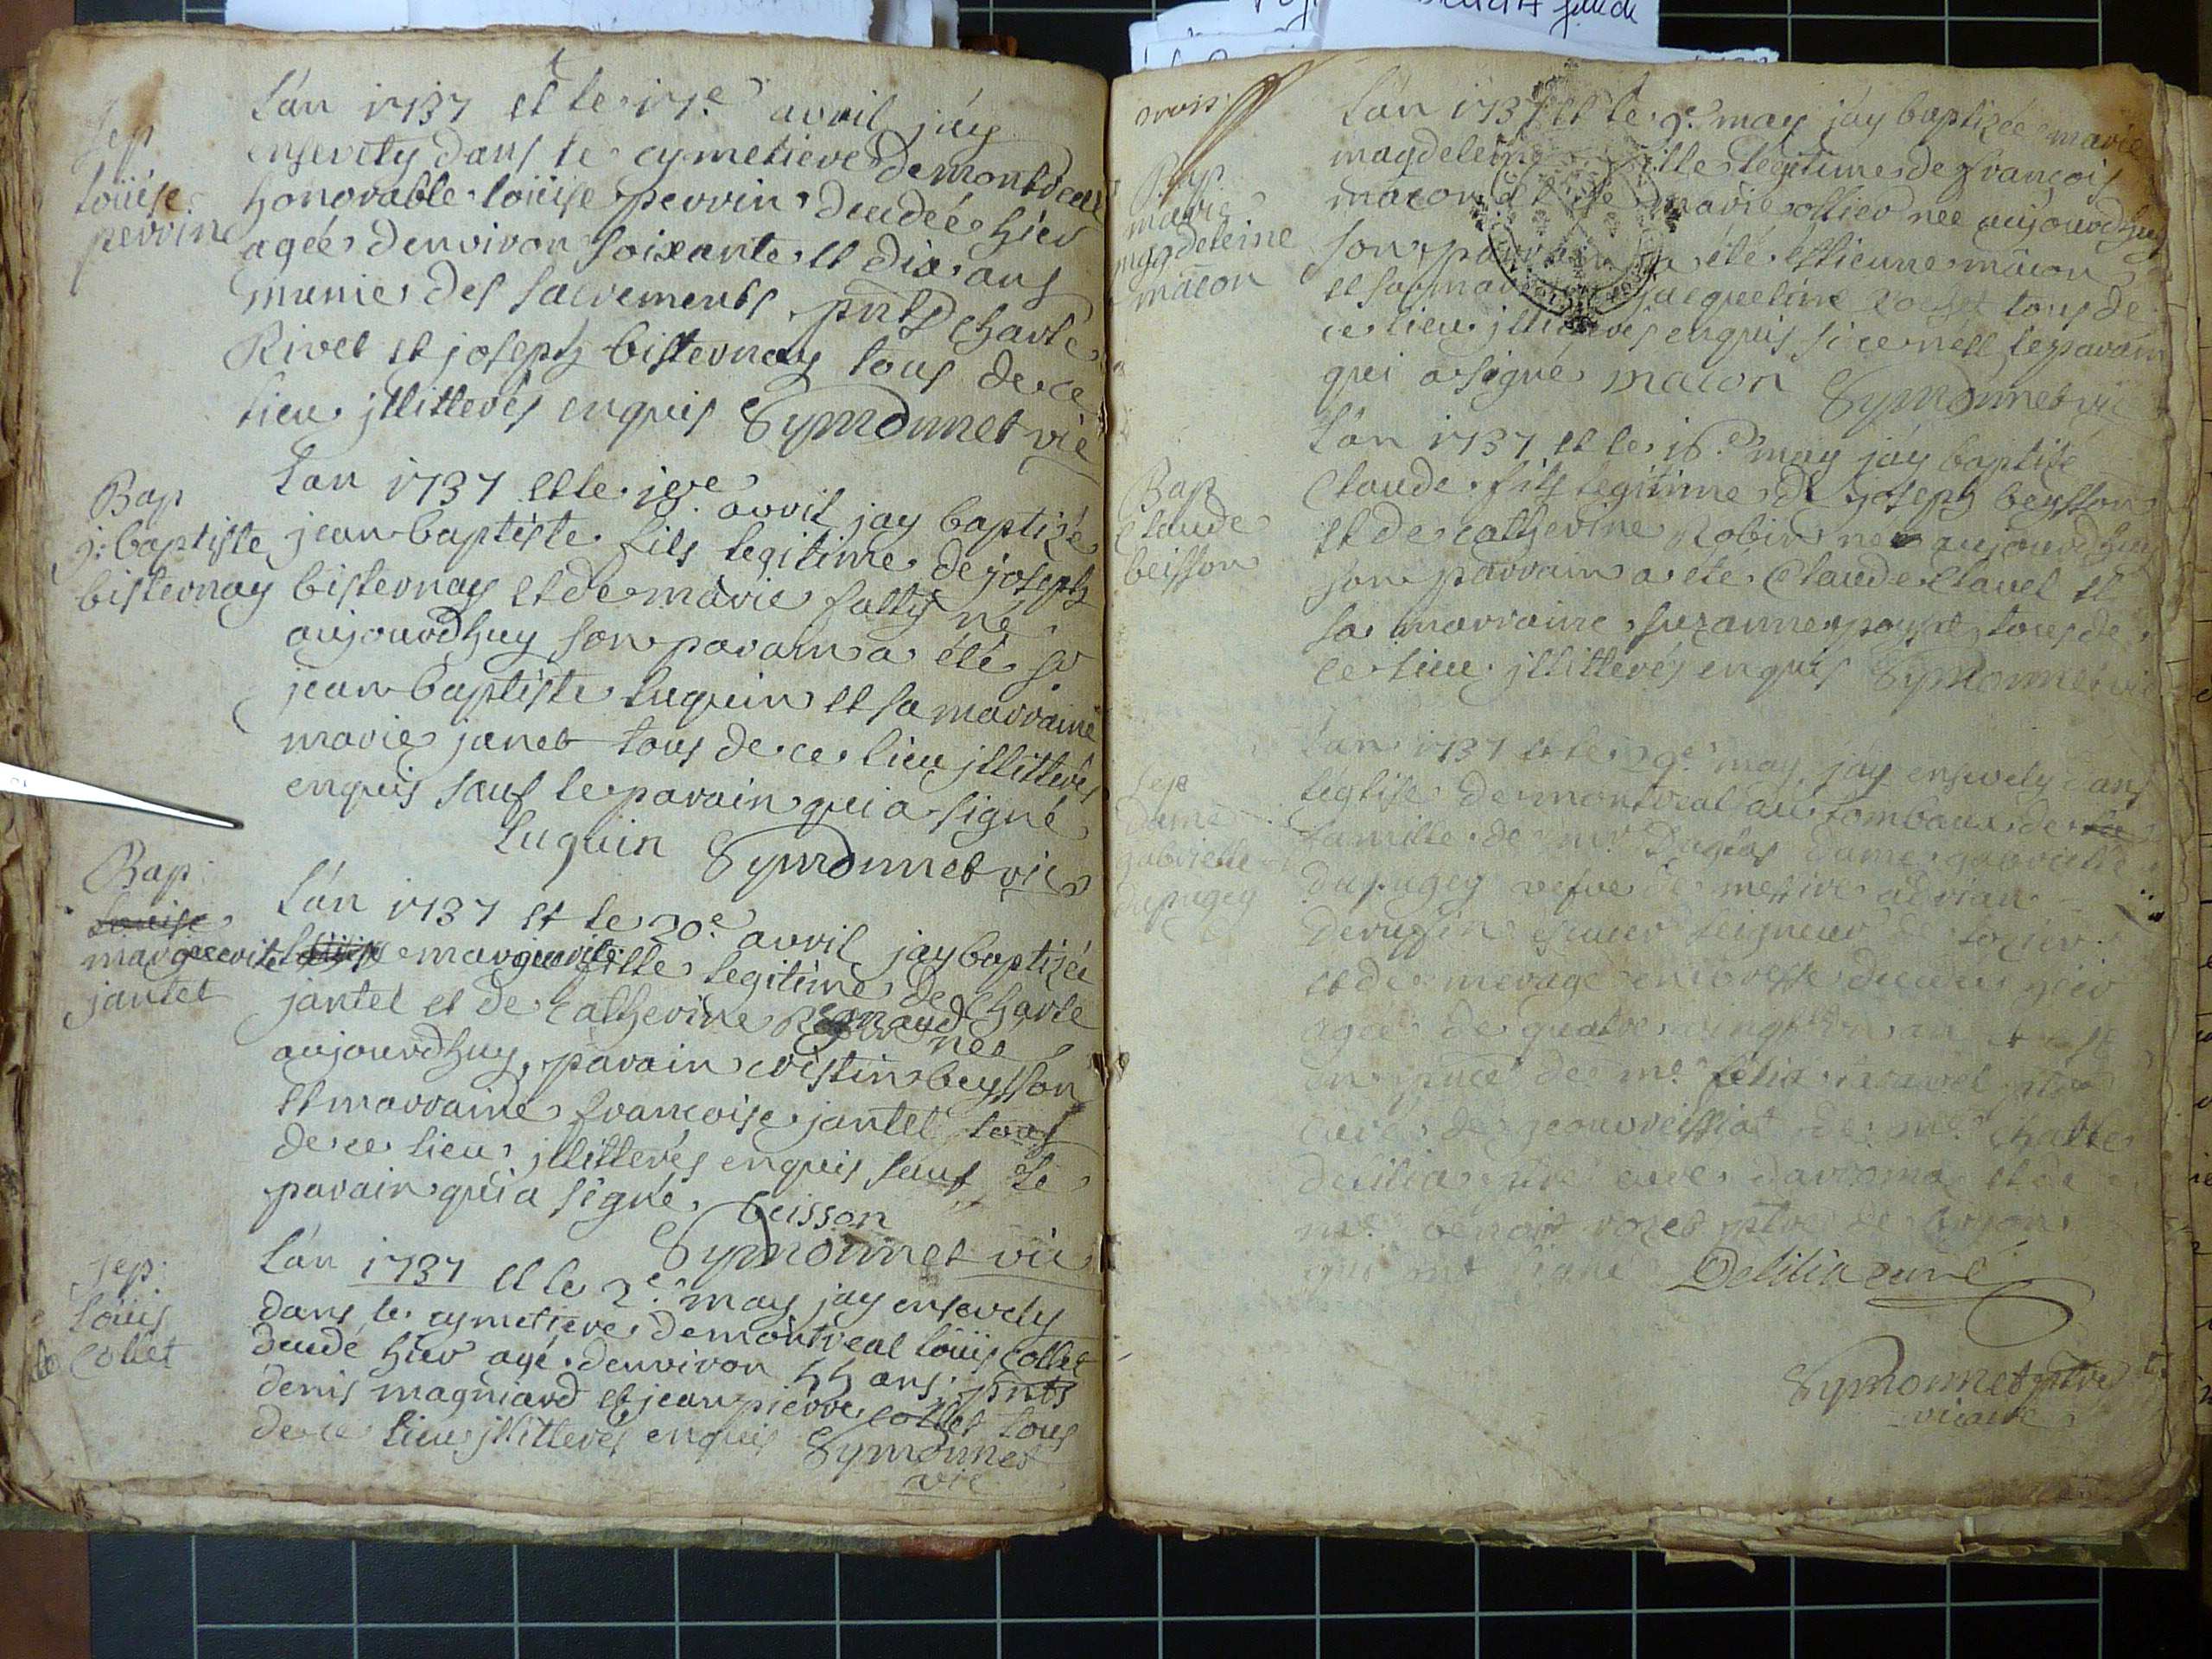 Sep
loüise
perrin
Lán 1737 et le 17e avril jáy
ensevely dans le cymetiere de montreal
honorable loüise perrin decedée hier
agée denviron soixante et dix ans
munie des sacrements pnts Charle
Rivet et joseph bisternay tous de ce
lieu jllitterés enquis Symonnet vic
Bap
j: baptiste
bisternay
Lan 1737 et le 18e avril jay baptizé
jean baptiste fils legitime de joseph
bisternay et de marie né
aujourdhuy son parain a été sr
jean baptiste luquin et sa marraine
marie janet tous de ce lieu jllitterés
enquis sauf le parain qui a signé
Luquin Symonnet vic
Bap
marguerite
jantet
Lán 1737 et le 20e avril jay baptizée
marguerite fille legitime de Charle
jantet et de Catherine née
aujourdhuy, parain cristin beysson
et marraine francoise jantet tous
de ce lieu jllitterés enquis sauf le
parain qui a signé beisson
Symonnet vic
Sep:
Loüis
Collet
Lán 1737 et le 2e may jay ensevely
dans le cymetiere de montreal loüis Collet
decedé hier agé denviron ans pnts
denis magniard et jean pierre collet tous
de ce lieu jllitterés enquis Symonnet
vic
Bap
marie
magdeleine
mâcon
Lán 1737 et le 9e may jáy baptizée marie
magdeleine fille legitime de francois
mâcon et de marie ollier née aujourdhuy
son parrain a été estienne mâcon
et sa marraine jacqueline tous de
ce lieu jllitterés enquis si ce nést le parain
qui a signé macon Symonnet vic
Bap
Claude
beisson
Lán 1737 et le 16e may jáy baptisé
Claude fils legitime de joseph beysson
et de catherine Robin né aujourdhuy
son parrain a été Claude Clavel et
sa marraine suzanne tous de
ce lieu jllitterés enquis Symonnet vic
Sep
Dame
gabrielle
dupugey
Lán 1737 et le 29e may jay ensevely dans
léglise de montreal au tombaux de
famille de mr Duglas dame gabrielle
dupugey vefve de messire adrian
seigneur de
et de en bresse decedée hier
agée de quatre vingt
en pnce de me felix
curé de geovreissiat de me Charle
Delilia curé et de
me benoit ptre de
qui ont signé Delilia curé
Symonnet ptre
vicaire